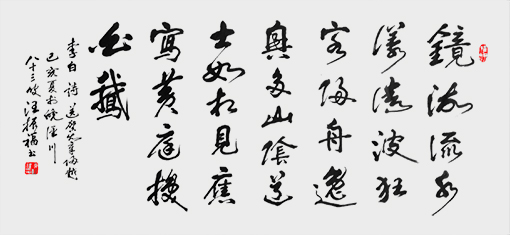 鏡湖流水
漾清波狂
客歸舟逸
興多山陰道
士如相見應
寫黄庭換
白鵝
李白詩送賀賓客歸越
己亥夏於皖涇川
八十三叟汪振福書